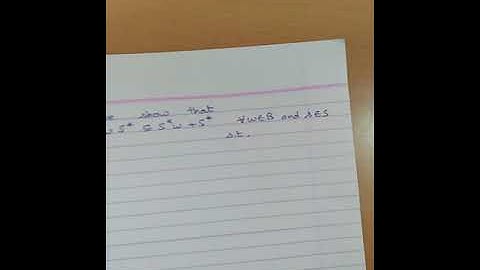 show that
S* ⊆ S*w + S* ∀w∈B and s∈S
s.t.